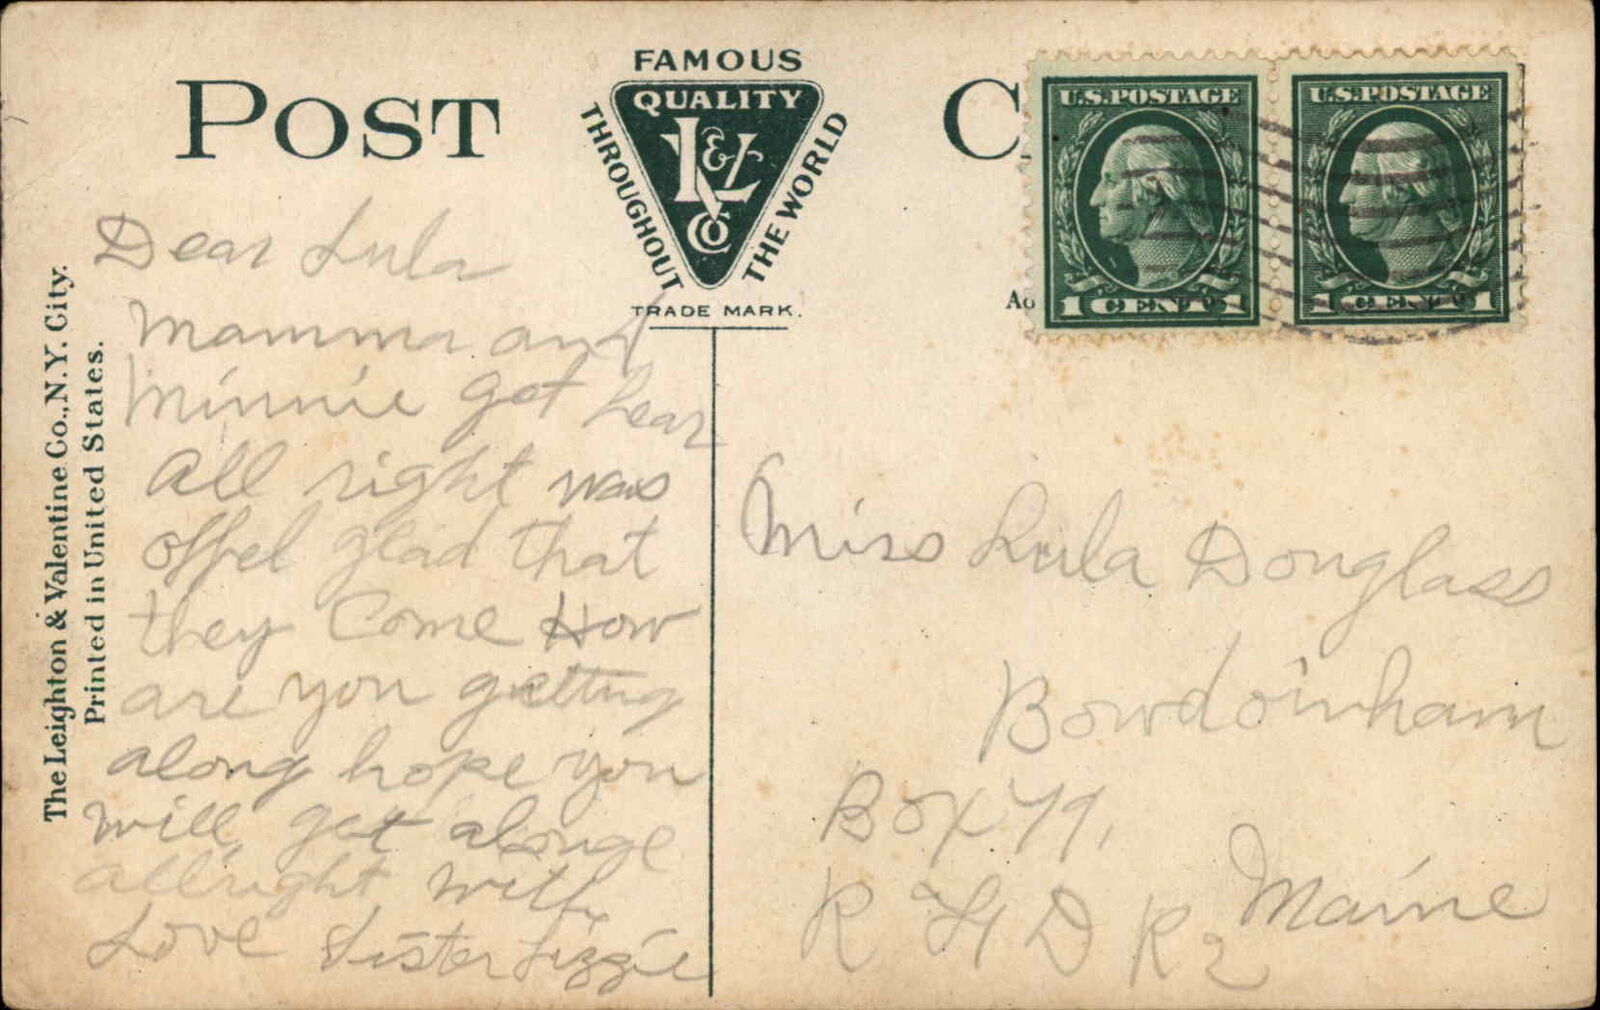 POST C
FAMOUS
QUALITY
L & V Co
THROUGHOUT THE WORLD
TRADE MARK.
U.S. POSTAGE
1 CENT 1
U.S. POSTAGE
1 CENT 1
The Leighton & Valentine Co., N.Y. City.
Printed in United States.
Dear Lula
Mamma and
Minnie got hear
all right was
offel glad that
they come How
are you getting
along hope you
will get alonge
allright with
Love Sister Lizzie
Miss Lula Douglass
Bowdoinham
Box 79,
Maine
R F D R 2